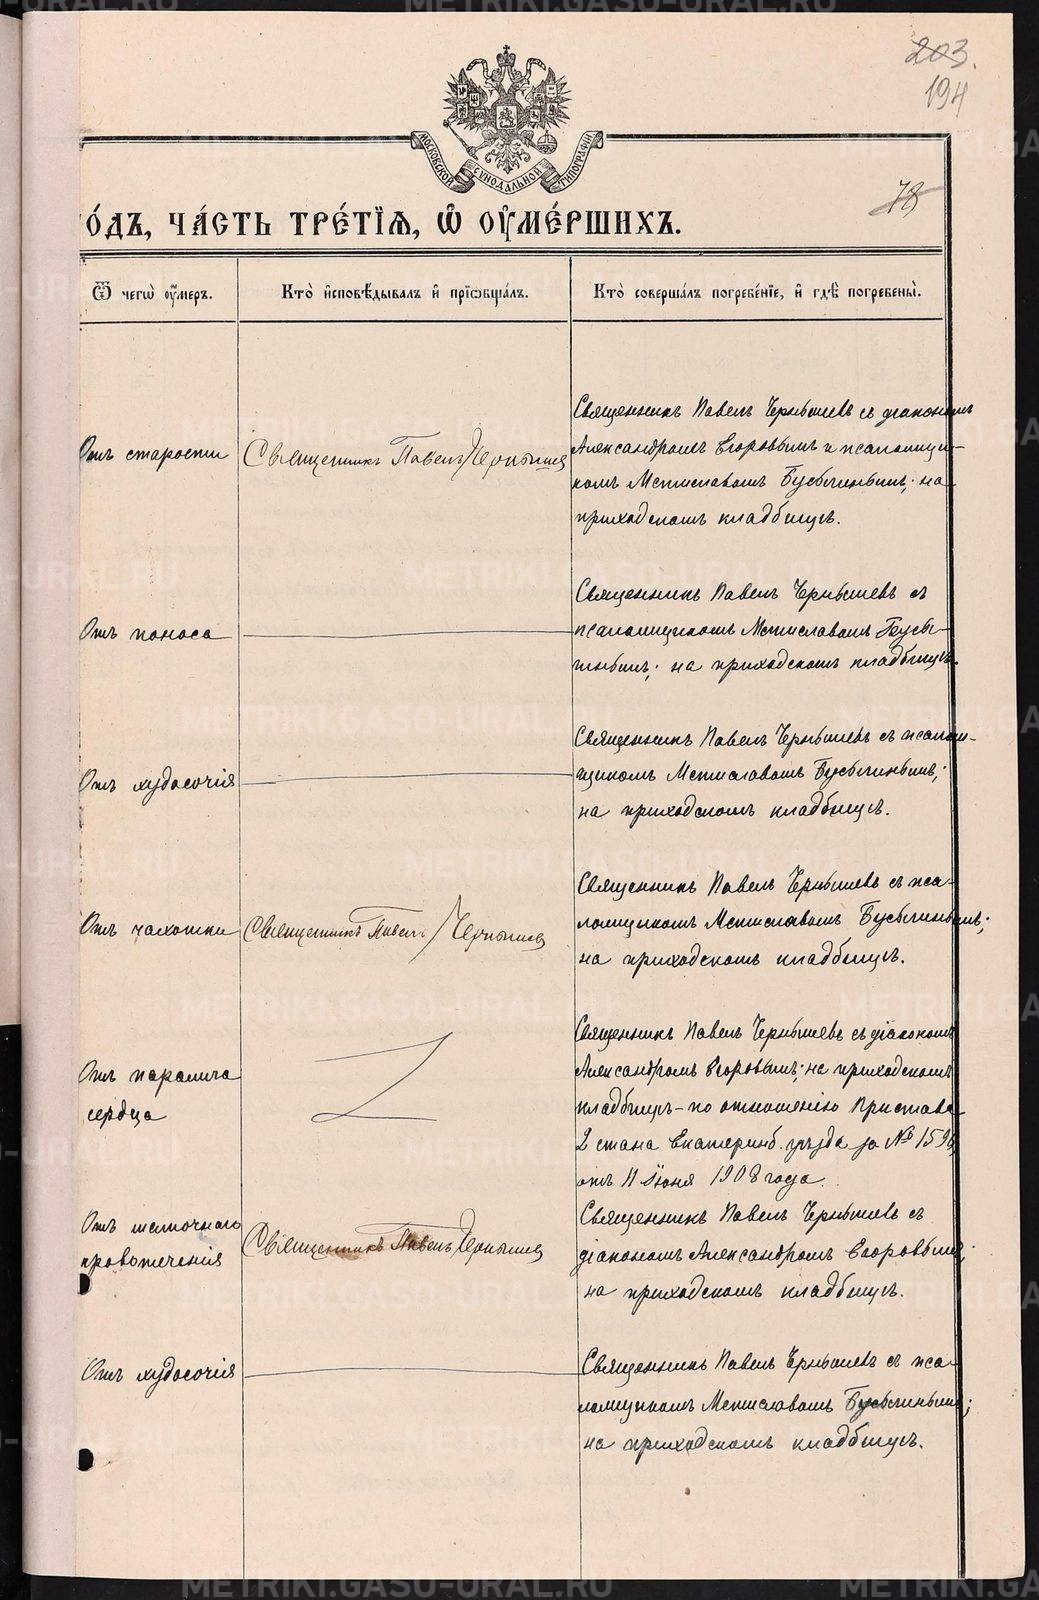 203.
194
78
МОСКОВСКОЙ СУНОДАЛЬНОЙ ТИПОГРАФІИ
О́ДЪ, ЧА́СТЬ ТРЕ́ТІѦ, Ѡ҆ ОУ҆МЕ́РШИХЪ.
Ѿ чегѡ̀ оу҆́меръ.
Кто̀ и҆сповѣ́дывалъ и҆ прїѡбща́лъ.
Кто̀ соверша́лъ погребе́нїе, и҆ гдѣ̀ погребены̀.
Отъ старости
Священникъ Павелъ Чернышев
Священникъ Павелъ Чернышевъ съ діакономъ
Александромъ Егоровымъ и псаломщи-
комъ Мстиславомъ Бусыгинымъ; на
приходскомъ кладбищѣ.
Отъ поноса
Священникъ Павелъ Чернышевъ съ
псаломщикомъ Мстиславомъ Бусы-
гинымъ; на приходскомъ кладбищѣ.
Отъ худосочія
Священникъ Павелъ Чернышевъ съ псалом-
щикомъ Мстиславомъ Бусыгинымъ;
на приходскомъ кладбищѣ.
Отъ чахотки
Священникъ Павелъ Чернышев
Священникъ Павелъ Чернышевъ съ пса-
ломщикомъ Мстиславомъ Бусыгинымъ;
на приходскомъ кладбищѣ.
Отъ паралича
сердца
Священникъ Павелъ Чернышевъ съ діакономъ
Александромъ Егоровымъ; на приходскомъ
кладбищѣ – по отношенію Пристава
2 стана Екатеринб. уѣзда за №
отъ 11 Іюня 1908 года.
Отъ маточнаго
кровотеченія
Священникъ Павелъ Чернышев
Священникъ Павелъ Чернышевъ съ
діакономъ Александромъ Егоровымъ;
на приходскомъ кладбищѣ.
Отъ худосочія
Священникъ Павелъ Чернышевъ съ пса-
ломщикомъ Мстиславомъ Бусыгинымъ;
на приходскомъ кладбищѣ.
METRIKI.GASO-URAL.RU